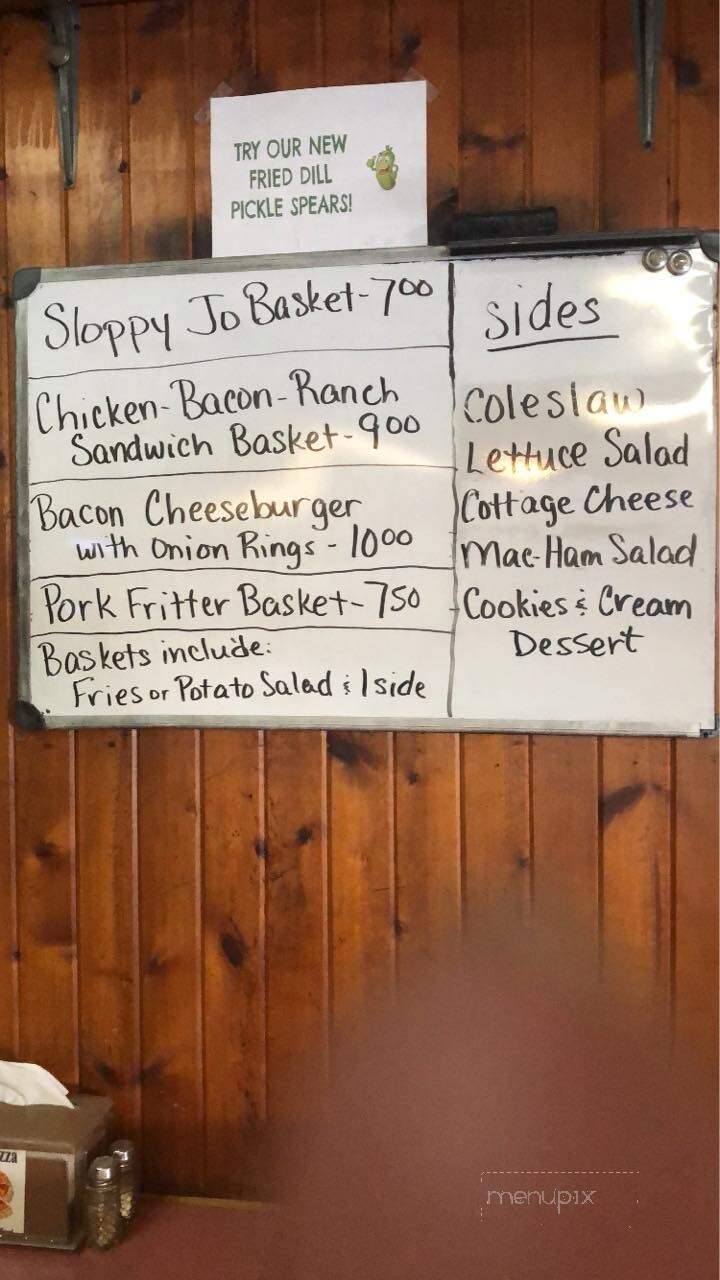 TRY OUR NEW
FRIED DILL
PICKLE SPEARS!
Sloppy Jo Basket - 7.00
Chicken-Bacon-Ranch
Sandwich Basket - 9.00
Bacon Cheeseburger
with Onion Rings - 10.00
Pork Fritter Basket - 7.50
Baskets include:
Fries or Potato Salad & 1 side
Sides
Coleslaw
Lettuce Salad
Cottage Cheese
Mac-Ham Salad
Cookies & Cream
Dessert
zza
menupix